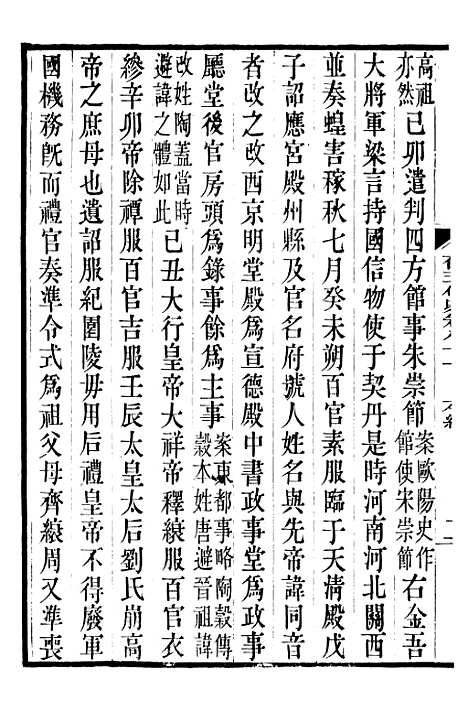 高祖亦然己卯遣判四方館事朱崇節案歐陽史作節使宋崇節右金吾
大將軍梁言持國信物使于契丹是時河南河北關西
並奏蝗害稼秋七月癸未朔百官素服臨于天清殿戊
子詔應宮殿州縣及官名府號人姓名與先帝諱同音
者改之改西京明堂殿爲宣德殿中書政事堂爲政事
廳堂後官房頭爲錄事餘爲主事案東都事略陶穀傳穀本姓唐避晉祖諱
改姓陶蓋當時避諱之體如此己丑大行皇帝大祥帝釋縗服百官衣
縿辛卯帝除禫服百官吉服壬辰太皇太后劉氏崩高
帝之庶母也遺詔服紀園陵毋用后禮皇帝不得廢軍
國機務旣而禮官奏準令式爲祖父母齊縗周又準喪